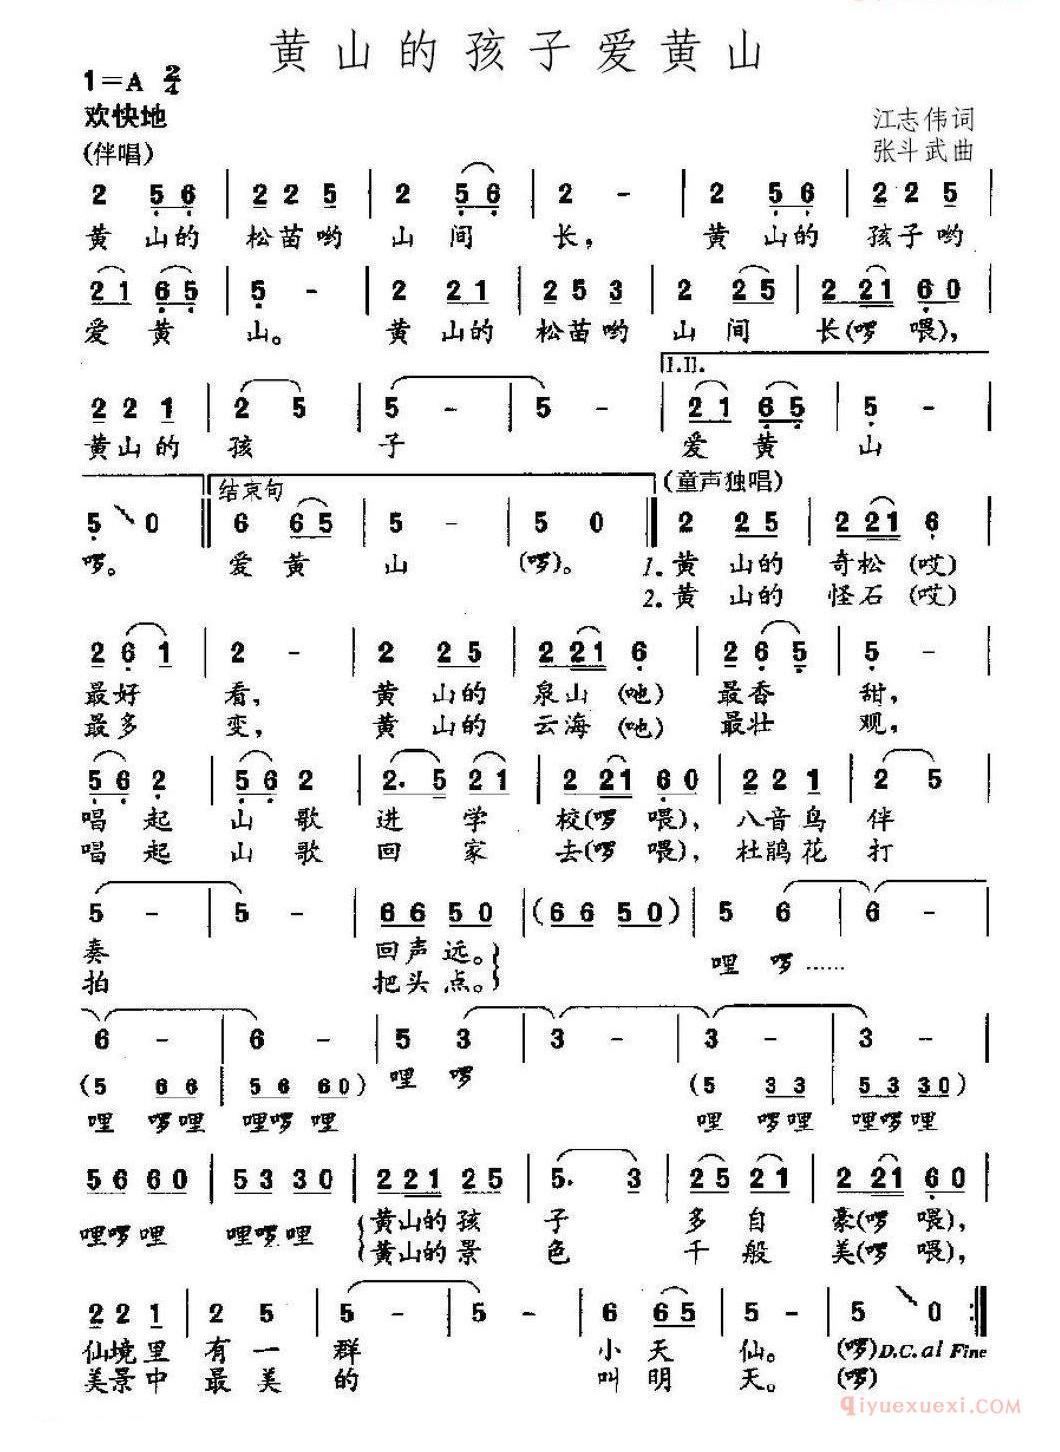 黄山的孩子爱黄山
1=A 2/4
欢快地
江志伟词
(伴唱)
张斗武曲
2 5 6 | 2 2 5 | 2 5 6 | 2 - | 2 5 6 | 2 2 5 |
黄 山的 松苗哟 山 间 长， 黄 山的 孩子哟
2 1 6 5 | 5 - | 2 2 1 | 2 5 3 | 2 2 5 | 2 2 1 6 0 |
爱 黄 山。 黄 山的 松苗哟 山 间 长(啰 喂)，
I.II.
2 2 1 | 2 5 | 5 - | 5 - | 2 1 6 5 | 5 - |
黄山的 孩 子 爱 黄 山
结束句 (童声独唱)
5 0 || 6 6 5 | 5 - | 5 0 || 2 2 5 | 2 2 1 6 |
啰。 爱 黄 山 (啰)。 1.黄 山的 奇松(哎)
2.黄 山的 怪石(哎)
2 6 1 | 2 - | 2 2 5 | 2 2 1 6 | 2 6 5 | 5 - |
最好 看， 黄 山的 泉山(吔) 最香 甜，
最多 变， 黄 山的 云海(吔) 最壮 观，
5 6 2 | 5 6 2 | 2. 5 2 1 | 2 2 1 6 0 | 2 2 1 | 2 5 |
唱 起 山 歌 进 学 校(啰 喂)， 八音鸟 伴
唱 起 山 歌 回 家 去(啰 喂)， 杜鹃花 打
5 - | 5 - | 6 6 5 0 | (6 6 5 0) | 5 6 | 6 - |
奏 回声远。 哩 啰……
拍 把头点。
6 - | 6 - | 5 3 | 3 - | 3 - | 3 - |
(5 6 6 | 5 6 6 0) 哩 啰 (5 3 3 | 5 3 3 0)
哩 啰哩 哩啰哩 哩 啰哩 哩啰哩
5 6 6 0 | 5 3 3 0 | 2 2 1 2 5 | 5. 3 | 2 5 2 1 | 2 2 1 6 0 |
哩啰哩 哩啰哩 黄山的孩 子 多 自 豪(啰 喂)，
黄山的景 色 千 般 美(啰 喂)，
2 2 1 | 2 5 | 5 - | 5 - | 6 6 5 | 5 - | 5 0 :||
仙境里 有 一 群 小 天 仙。 (啰) D.C.al Fine
美景中 最 美 的 叫 明 天。 (啰)
qiyuexuexi.com